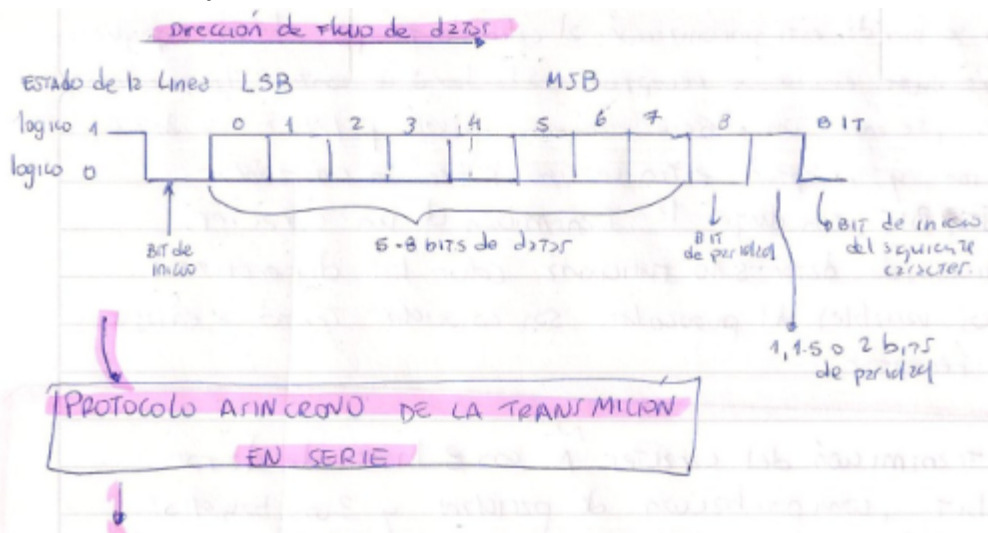 Dirección de Flujo de datos
ESTADO de la Linea LSB MSB
logico 1 0 1 2 3 4 5 6 7 8 BIT
logico 0
BIT de inicio
5-8 bits de datos
BIT de paridad
BIT de inicio
del siguiente
caracter.
1, 1.5 o 2 bits
de paridad
PROTOCOLO ASINCRONO DE LA TRANSMICION
EN SERIE